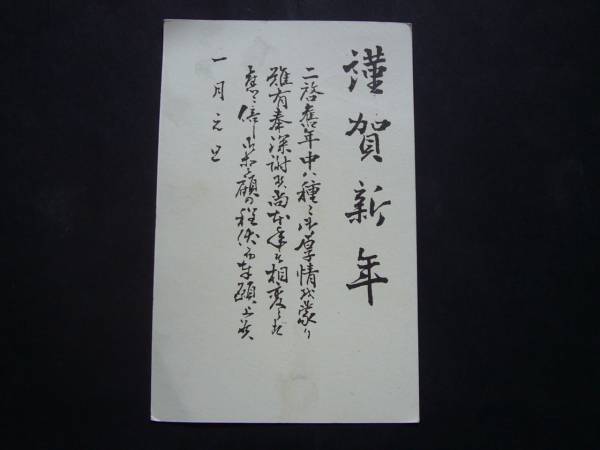 謹賀新年
二啓舊年中ハ種々御厚情を蒙り
難有奉深謝候尚本年も相変らず
倍し御愛顧の程伏而奉願上候
一月元旦